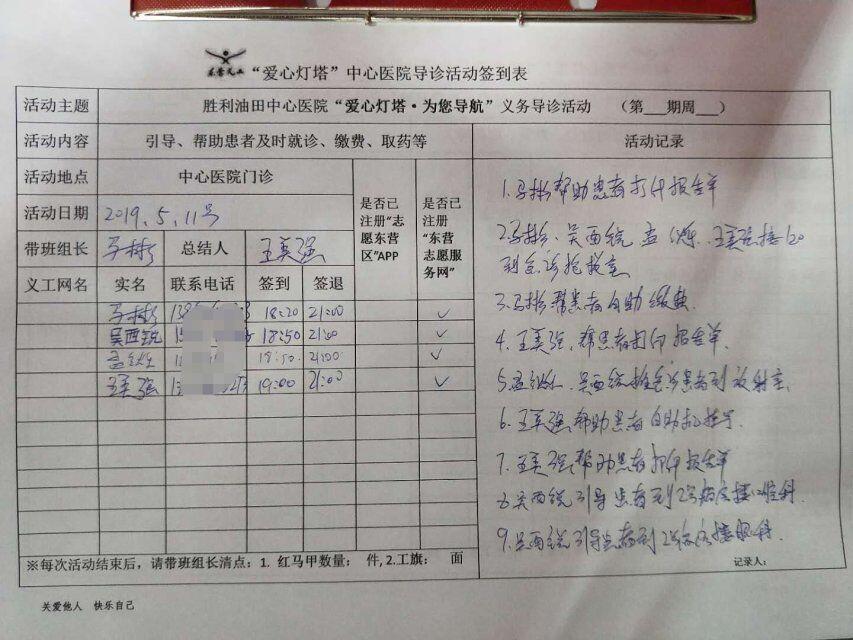 “爱心灯塔”中心医院导诊活动签到表
活动主题 胜利油田中心医院“爱心灯塔·为您导航”义务导诊活动 （第___期周___）
活动内容 引导、帮助患者及时就诊、缴费、取药等 活动记录
活动地点 中心医院门诊
活动日期 2019.5.11号
带班组长 马彬 总结人 王美强
是否已注册“志愿东营区”APP
是否已注册“东营志愿服务网”
义工网名 实名 联系电话 签到 签退
马彬 18:20 21:00 ✓
吴西锐 18:50 21:00 ✓
孟 18:50 21:00 ✓
王美强 19:00 21:00 ✓
1.马彬帮助患者打印报告单
2.马彬、吴西锐、孟 王美强接120
到急诊抢救室
3.马彬帮患者自助缴费
4.王美强、帮患者打印报告单.
5.孟 吴西锐推 患者到放射室.
6.王美强帮助患者自助机挂号.
7.王美强帮助患者打印报告单
8.吴西锐引导患者到2号病房楼 科.
9.吴西锐引导患者到2号病房楼眼科.
※每次活动结束后，请带班组长清点：1. 红马甲数量： 件，2.工旗： 面
记录人：
关爱他人 快乐自己